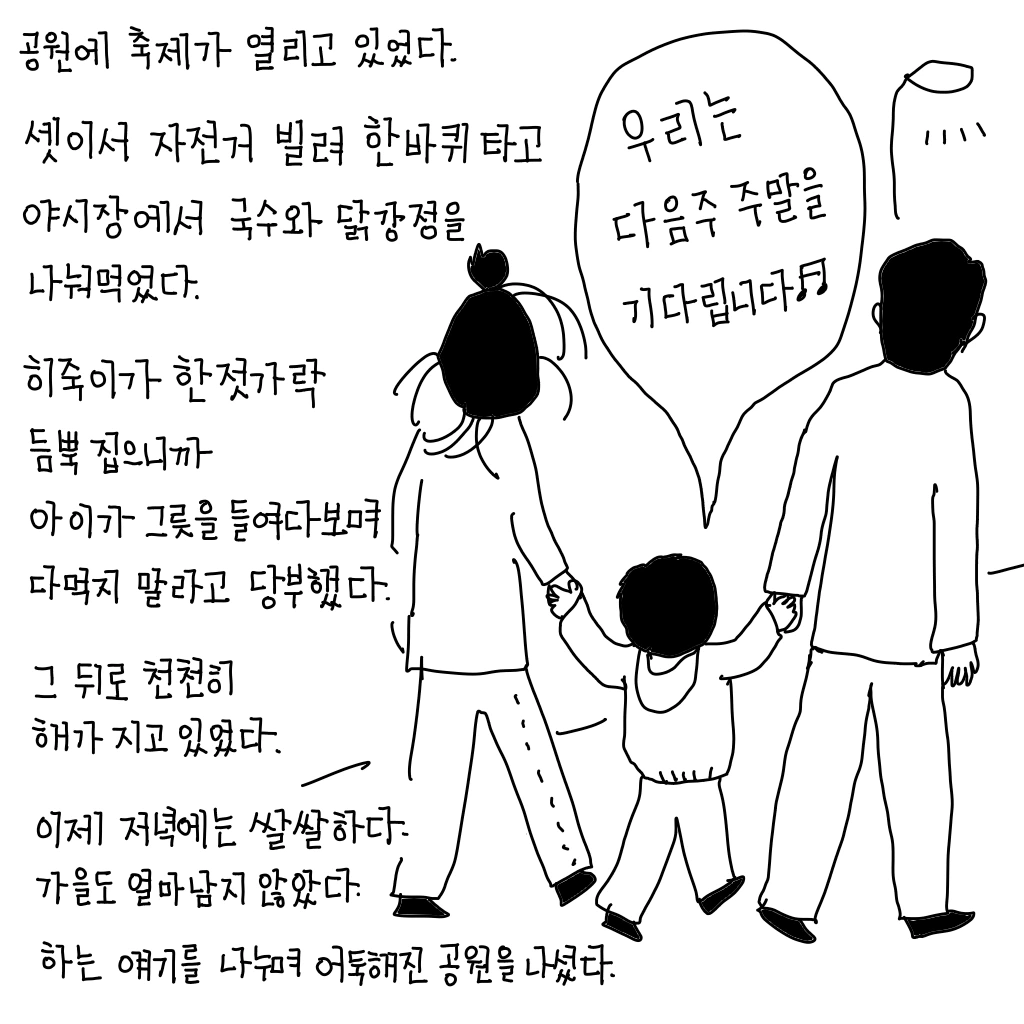 공원에 축제가 열리고 있었다.
셋이서 자전거 빌려 한바퀴 타고
야시장에서 국수와 닭강정을
나눠먹었다.
히죽이가 한젓가락
듬뿍 집으니까
아이가 그릇을 들여다보며
다먹지 말라고 당부했다.
그 뒤로 천천히
해가 지고 있었다.
이제 저녁에는 쌀쌀하다.
가을도 얼마남지 않았다.
하는 얘기를 나누며 어둑해진 공원을 나섰다.
우리는
다음주 주말을
기다립니다♫